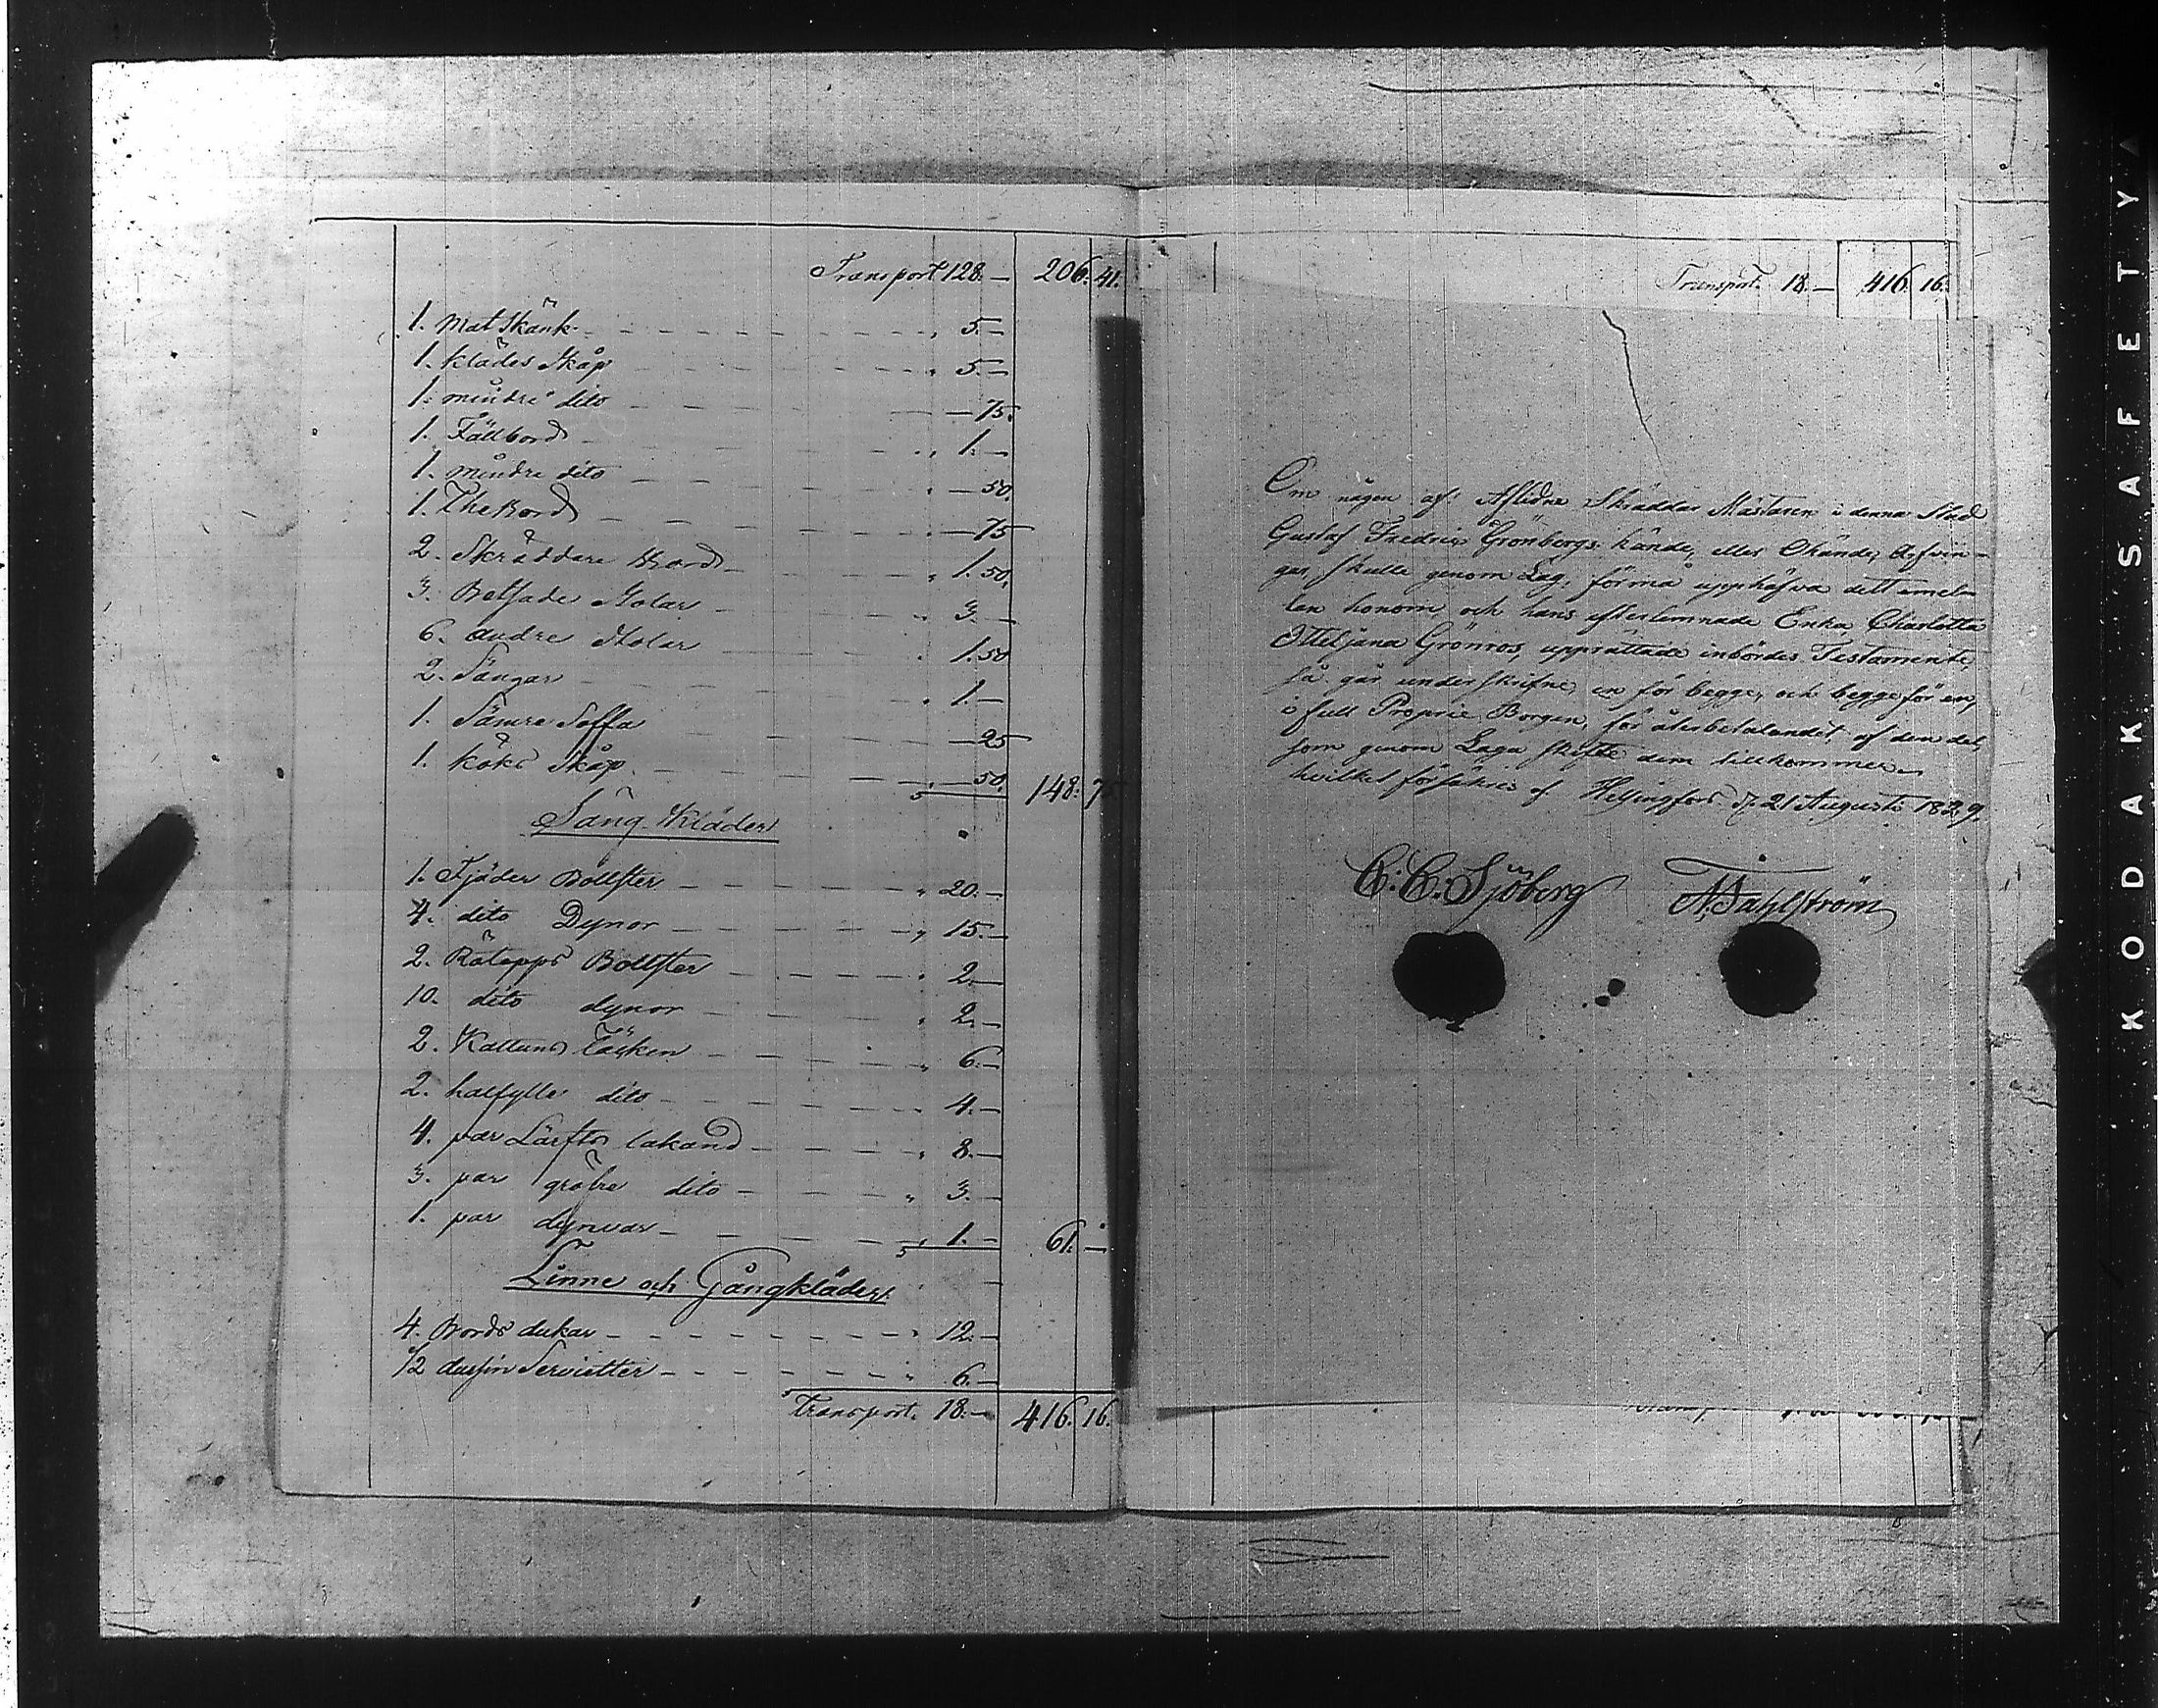 Transport 128.— 206. 41.
1. Mat Skänk — 5.—
1. klädes Skåp — 5.—
1. mindre dito — 75.
1. Fällbord — 1.—
1. mindre dito — 50.
1. The Bord — 75
2. Skräddare Bord — 1. 50.
3. Betsade Stolar — 3.—
6. andre Stolar — 1. 50
2. Sängar — 1.—
1. Sämre Soffa — 25
1. köks Skåp — 50. 148. 75
Säng Kläder
1. Fjäder Bollster — 20.—
4. dito Dynor — 15.—
2. Rötapps Bollster — 2.—
10. dito dynor — 2.—
2. Kattuns Täcken — 6.—
2. halfylle dito — 4.—
4. par Lärfts lakand — 8.—
3. par gröfre dito — 3.—
1. par dynvar — 1.— 61.—
Linne och Gångkläder
4. Bords dukar — 12.—
1/2 dussin Servietter — 6.—
Transport. 18.— 416. 16.
Transport. 18.— 416. 16.
Om någon af Aflidne Skräddar Mästaren i denna Stad
Gustaf Fredric Grönbergs kände, eller Okände, Arfvin-
gar, skulle genom Lag, förmå upphäfva dett emel-
lan honom och hans efterlemnade Enka, Charlotta
Grönros, upprättade inbördes Testamente,
så går underskrifne, en för begge, och begge för en,
i full Proprie Borgen, för återbetalandet, af den del,
som genom Laga skifte dem tillkommer
hvilket försäkras af Helsingfors d. 21 Augusti 1839.
C: C: Sjöberg A: Dahlström
KODAK SAFETY